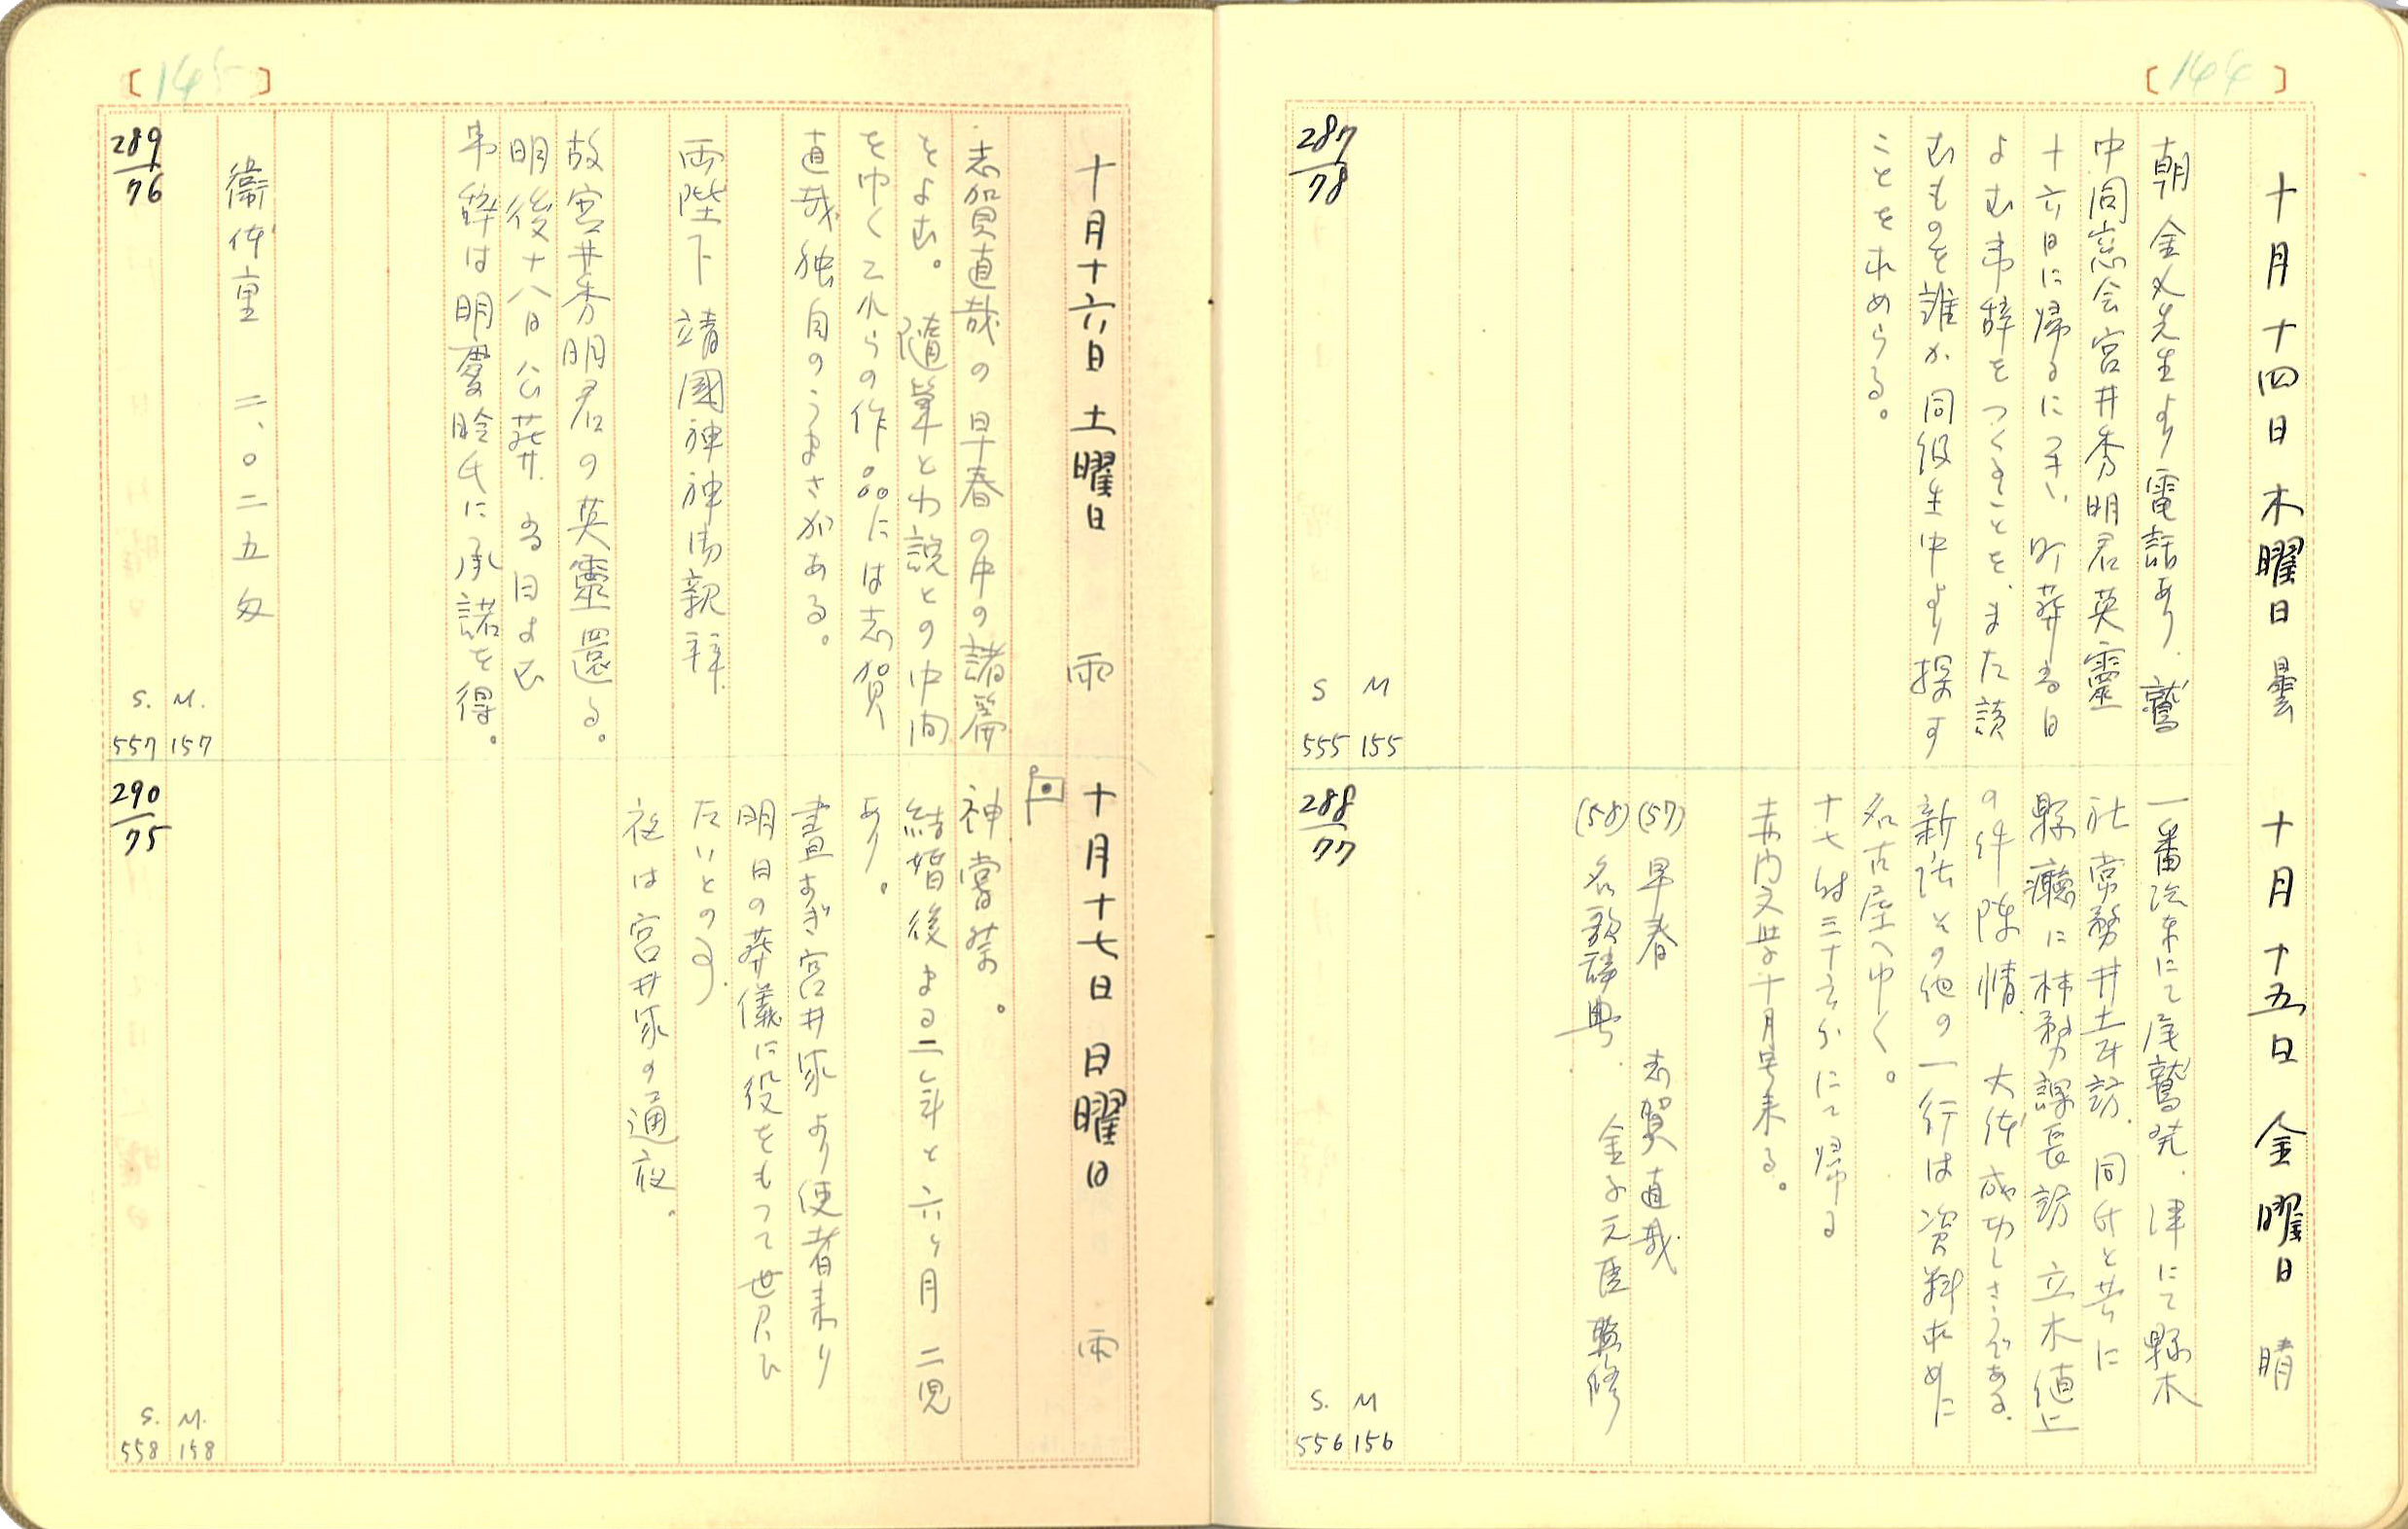 [144]
十月十四日 木曜日 曇
朝金〆先生より電話あり、鷲
中同窓会宮井秀明君英靈
十六日に帰るに予い、町葬当日
よむ弔辞をつくることを、また読
むものを誰か同級生中より探す
ことを求めらる。
287/78
S M
555 155
十月十五日 金曜日 晴
一番汽車にて尾鷲発、津にて縣木
社常務井土耳訪、同氏と共に
縣廳に林務課長訪 立木値上
の件陳情、大体成功しさうである。
新法その他の一行は資料求めに
名古屋へゆく。
十七時三十六分にて帰る
赤門文学十月号来る。
(57) 早春 志賀直哉
(58) 名歌辞典 金子元臣監修
288/77
S. M
556 156
[145]
十月十六日 土曜日 雨
志賀直哉の早春の中の諸篇
をよむ。隨筆と小説との中間
をゆくこれらの作品には志賀
直哉独自のうまさがある。
両陛下靖國神社御親拝
故宮井秀明君の英靈還る。
明後十八日公葬、当日よむ
弔辞は明
氏に承諾を得。
衞体重 二、〇二五匁
289/76
S. M.
557 157
十月十七日 日曜日 雨
神嘗祭。
結婚後まる二年と六ヶ月 二児
あり。
晝すぎ宮井家より使者来り
明日の葬儀に役をもつて世
たいとの事。
夜は宮井家の通夜。
290/75
S. M.
558 158